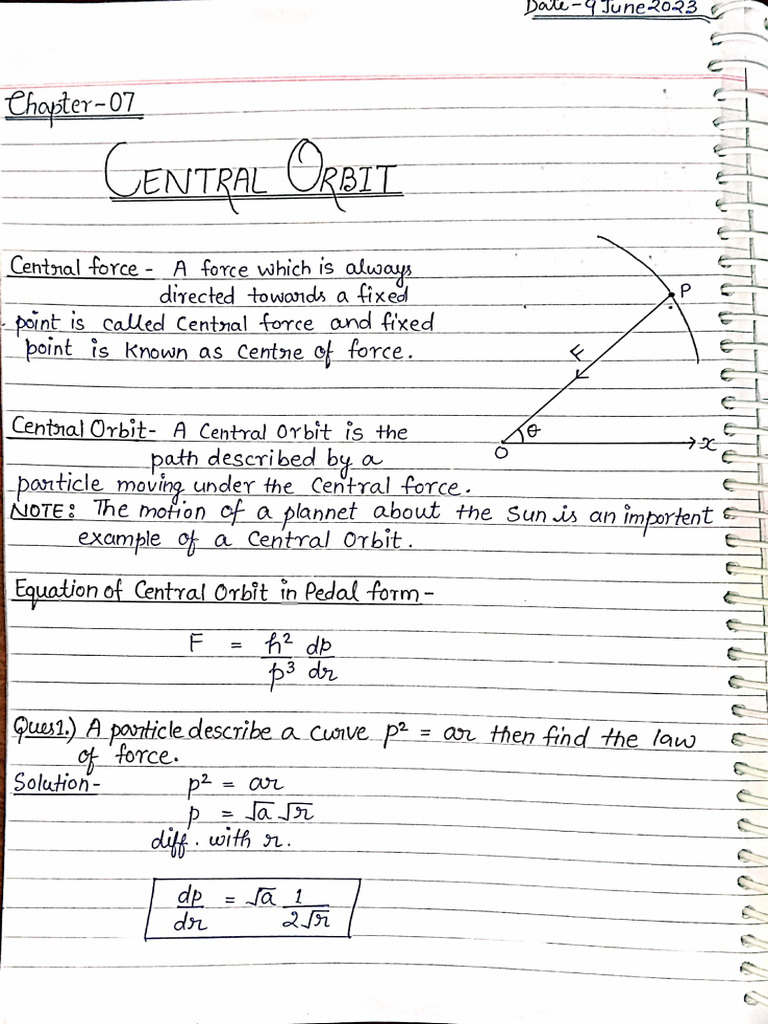 Date-9 June 2023
Chapter-07
CENTRAL ORBIT
Central force - A force which is always
directed towards a fixed
point is called Central force and fixed
point is known as Centre of force.
P
F
θ
O
x
Central Orbit- A Central Orbit is the
path described by a
particle moving under the Central force.
NOTE: The motion of a plannet about the Sun is an importent
example of a Central Orbit.
Equation of Central Orbit in Pedal form-
F = h²/p³ dp/dr
Ques1.) A particle describe a curve p² = ar then find the law
of force.
Solution- p² = ar
p = √a √r
diff. with r.
dp/dr = √a 1/2√r